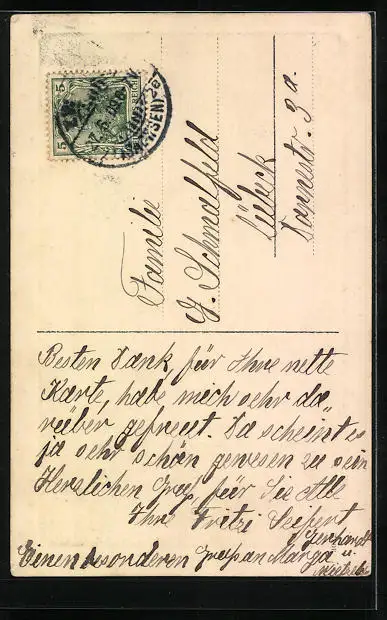 5 5
REICH
(SACHSEN)
Familie
J. Schmalfeld
Lübeck
Tannestr. 3a.
Besten Dank, für Ihre nette
Karte, habe mich sehr da
rüber gefreut. Da scheint es
ja sehr schön gewesen zu sein
Herzlichen Gruß für Sie Alle
Ihre Fritzi Seifert
u. Gerhardt
Einen besonderen Gruß an Marga u.